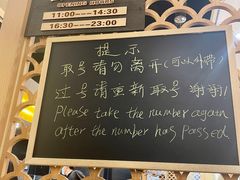 OPENING HOURS
11:00---14:30
16:30---23:00
提示
取号请勿离开(可以外带)
过号请重新取号 谢谢!
Please take the number again
after the number has passed